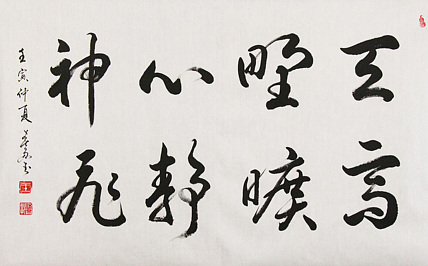 天高
野曠
心靜
神飛
壬寅仲夏